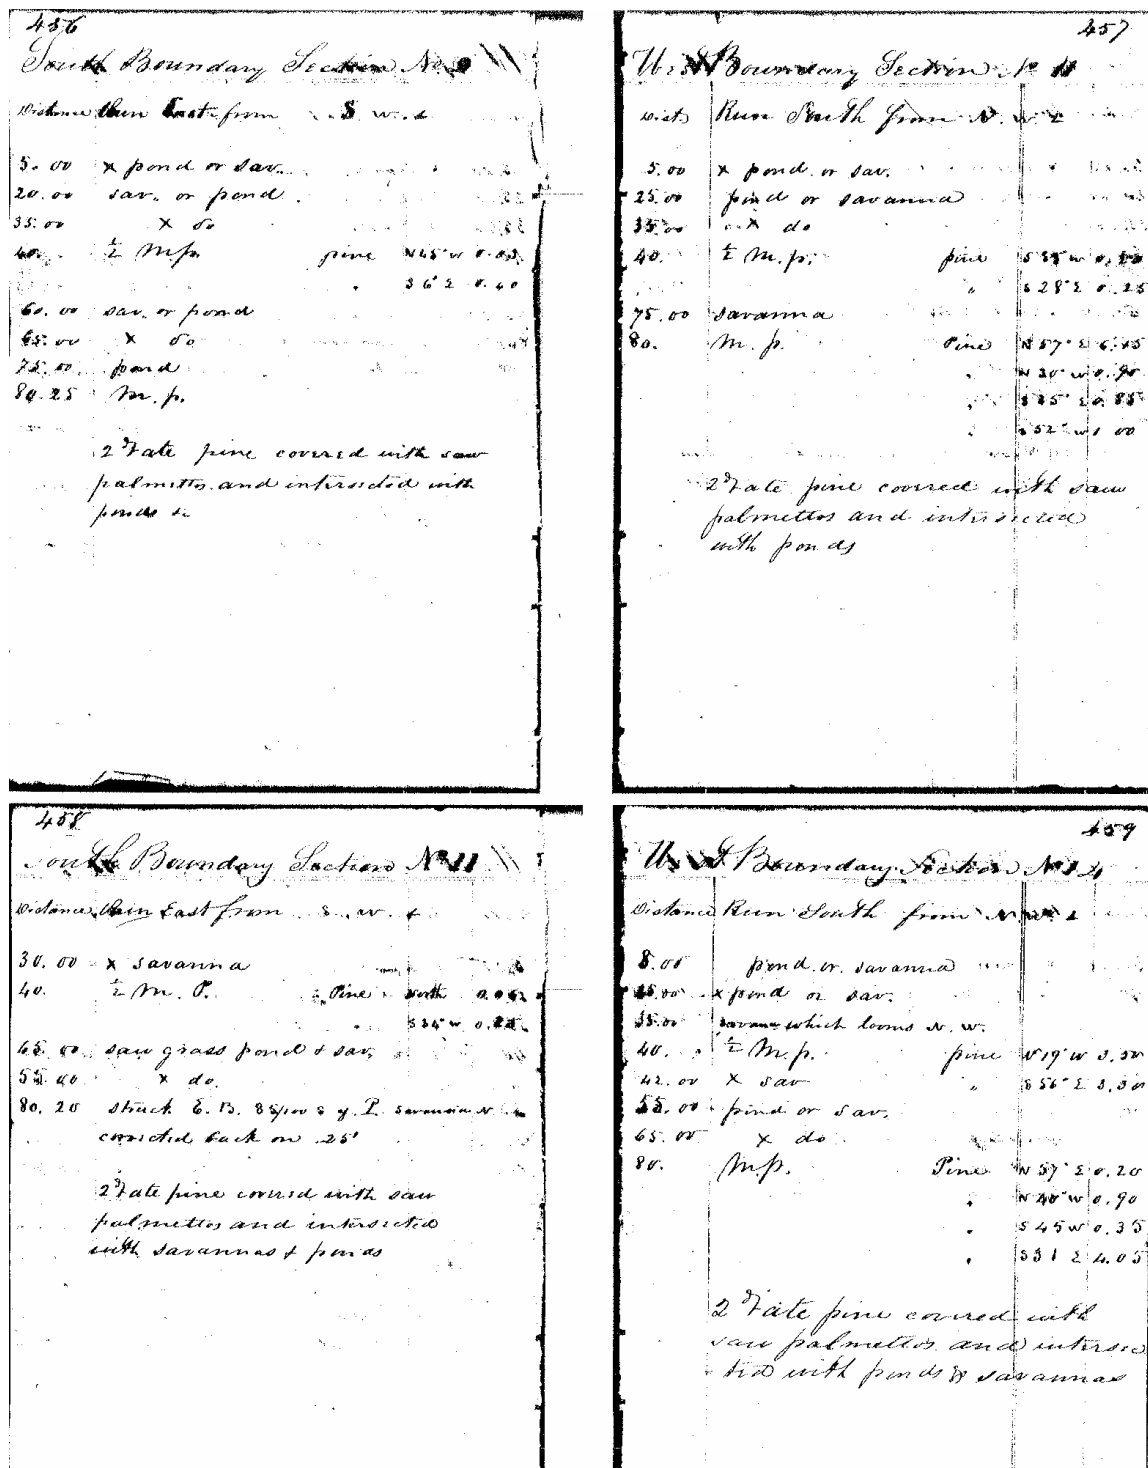 456
South Boundary Section No.
Distance then East from S W.
5.00 x pond or sav.
20.00 sav. or pond
35.00 x do
40. ½ M.p. pine N45°W
S 6° E 0.40
60.00 sav. or pond
65.00 x do
75.00 pond
80.25 M.p.
2d rate pine covered with saw
palmettos and intersected with
ponds &c
457
Boundary Section No 11
Dist. Run South from N. W.
5.00 x pond or sav.
25.00 pond or savanna
35.00 x do
40. ½ M.p. pine S 35° W
" S 28° E 0.25
75.00 savanna
80. M.p. Pine N 57° E
" N 20° W 0.90
" E 0.85
" S 52° W 1.00
2d rate pine covered with saw
palmettos and intersected
with ponds
458
South Boundary Section No 11
Distance then East from S. W.
30.00 x savanna
40. ½ M.P. Pine North
" S 34° W
saw grass pond & sav.
55.00 x do.
80.20 struck E.B. 85/100 S of P. savanna N
corrected back on 25'
2d rate pine covered with saw
palmettos and intersected
with savannas & ponds
459
Boundary Section No 14
Distance Run South from N W
8.00 pond or savanna
x pond or sav.
35.00 savanna which looms N. W.
40. ½ M.p. pine N 19° W 3.30
42.00 x sav " S 56° E 3.30
55.00 pond or sav.
65.00 x do
80. M.p. Pine N 57° E 0.20
" N 40° W 0.90
" S 45 W 0.35
" S 31 E 4.05
2d rate pine covered with
saw palmettos and intersec
ted with ponds & savannas